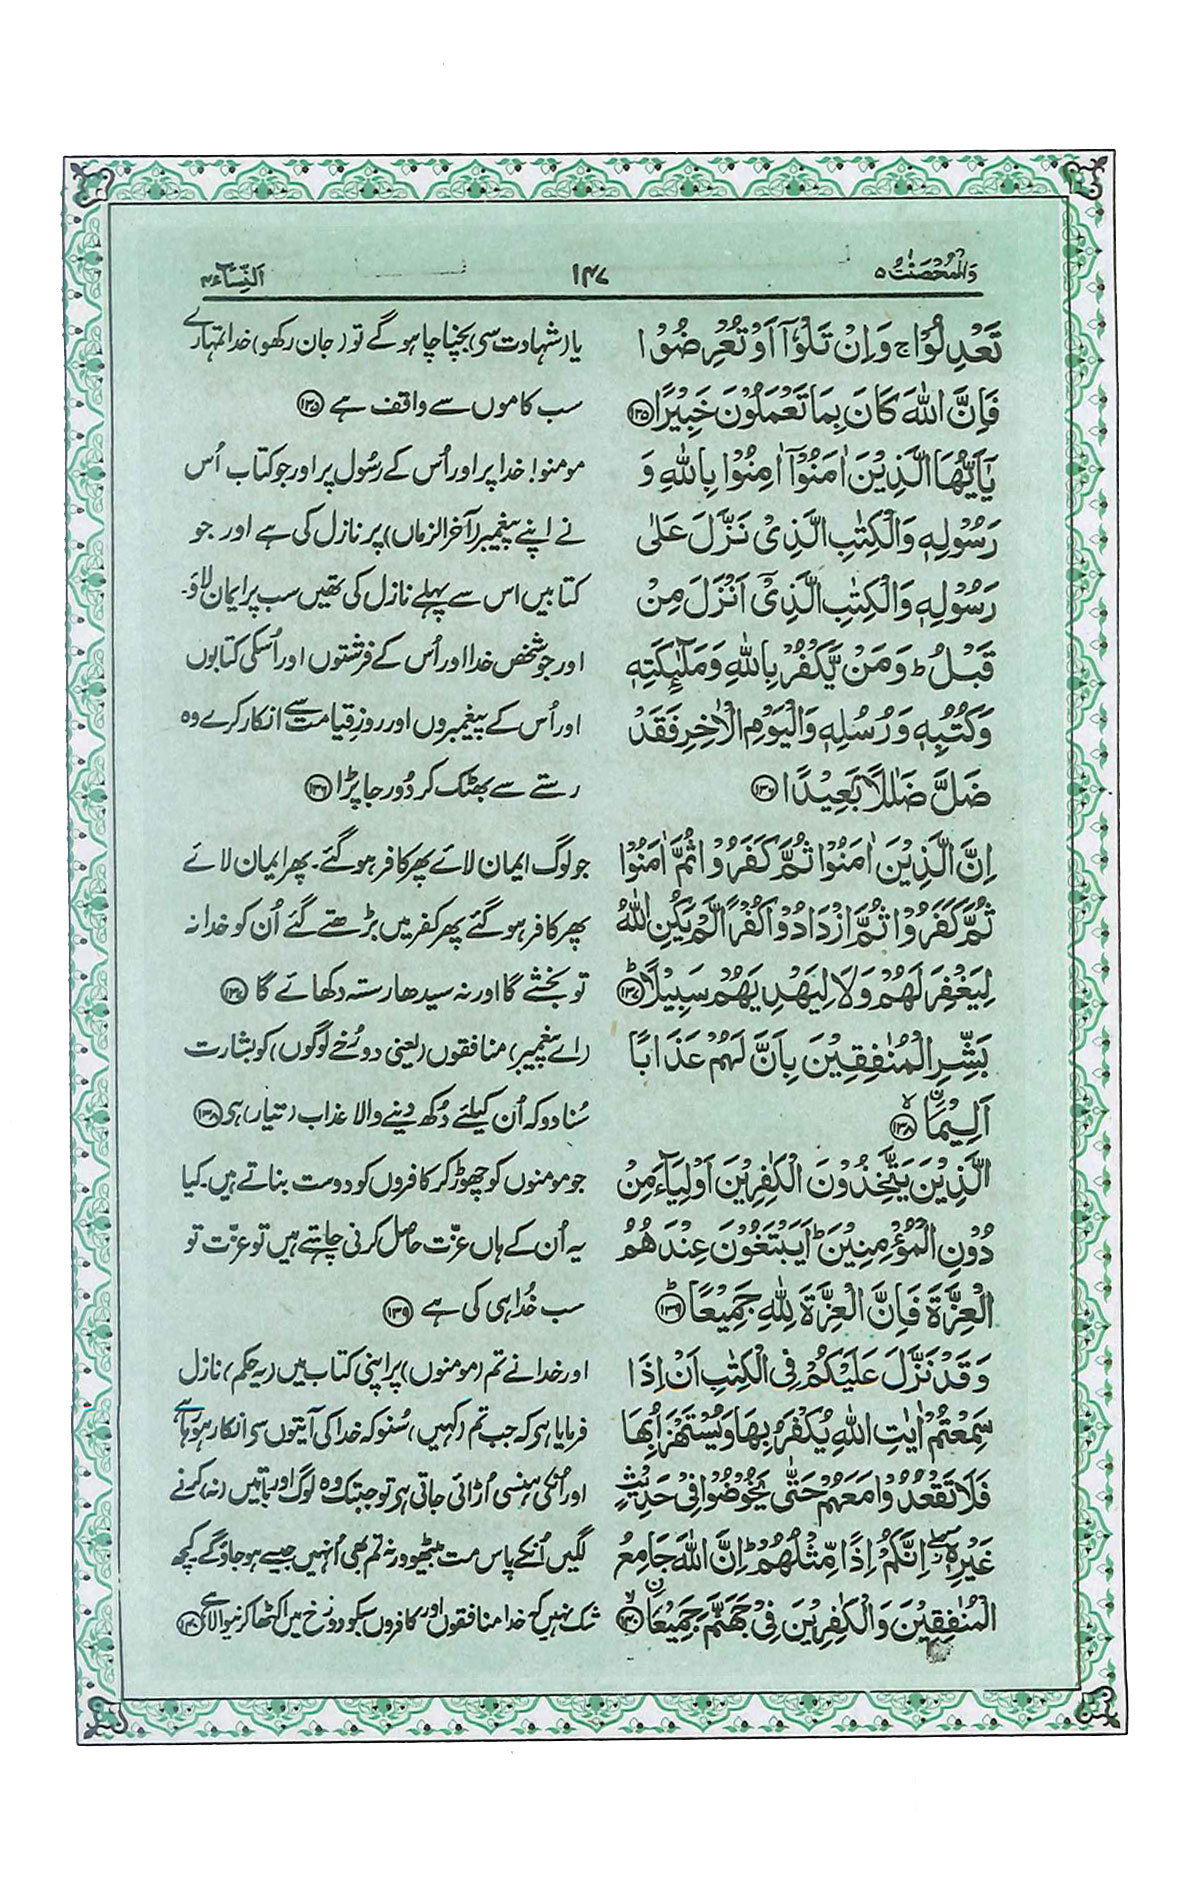 وَالْمُحْصَنٰتُ ۵
۱۴۷
اَلنِّسَآء۴
تَعْدِلُوْا ج وَاِنْ تَلْوٗٓا اَوْ تُعْرِضُوْا
فَاِنَّ اللّٰهَ كَانَ بِمَا تَعْمَلُوْنَ خَبِيْرًا ۱۳۵
يٰٓاَيُّهَا الَّذِيْنَ اٰمَنُوْٓا اٰمِنُوْا بِاللّٰهِ وَ
رَسُوْلِهٖ وَالْكِتٰبِ الَّذِىْ نَزَّلَ عَلٰى
رَسُوْلِهٖ وَالْكِتٰبِ الَّذِىْٓ اَنْزَلَ مِنْ
قَبْلُ ط وَمَنْ يَّكْفُرْ بِاللّٰهِ وَمَلٰٓئِكَتِهٖ
وَكُتُبِهٖ وَرُسُلِهٖ وَالْيَوْمِ الْاٰخِرِ فَقَدْ
ضَلَّ ضَلٰلًاۢ بَعِيْدًا ۱۳۶
اِنَّ الَّذِيْنَ اٰمَنُوْا ثُمَّ كَفَرُوْا ثُمَّ اٰمَنُوْا
ثُمَّ كَفَرُوْا ثُمَّ ازْدَادُوْا كُفْرًا لَّمْ يَكُنِ اللّٰهُ
لِيَغْفِرَ لَهُمْ وَلَا لِيَهْدِيَهُمْ سَبِيْلًا ط ۱۳۷
بَشِّرِ الْمُنٰفِقِيْنَ بِاَنَّ لَهُمْ عَذَابًا
اَلِيْمًا ۙ ۱۳۸
الَّذِيْنَ يَتَّخِذُوْنَ الْكٰفِرِيْنَ اَوْلِيَآءَ مِنْ
دُوْنِ الْمُؤْمِنِيْنَ ط اَيَبْتَغُوْنَ عِنْدَهُمُ
الْعِزَّةَ فَاِنَّ الْعِزَّةَ لِلّٰهِ جَمِيْعًا ط ۱۳۹
وَقَدْ نَزَّلَ عَلَيْكُمْ فِى الْكِتٰبِ اَنْ اِذَا
سَمِعْتُمْ اٰيٰتِ اللّٰهِ يُكْفَرُ بِهَا وَيُسْتَهْزَاُ بِهَا
فَلَا تَقْعُدُوْا مَعَهُمْ حَتّٰى يَخُوْضُوْا فِىْ حَدِيْثٍ
غَيْرِهٖٓ ۖ اِنَّكُمْ اِذًا مِّثْلُهُمْ ط اِنَّ اللّٰهَ جَامِعُ
الْمُنٰفِقِيْنَ وَالْكٰفِرِيْنَ فِىْ جَهَنَّمَ جَمِيْعًا ۙ ۱۴۰
یا (شہادت سی) بچنا چاہو گے تو (جان رکھو) خدا تمہارے
سب کاموں سے واقف ہے ۱۳۵
مومنو! خدا پر اور اُس کے رسُول پر اور جو کتاب اُس
نے اپنے پیغمبر (آخر الزماں) پر نازل کی ہے اور جو
کتابیں اس سے پہلے نازل کی تھیں سب پر ایمان لاؤ۔
اور جو شخص خدا اور اُس کے فرشتوں اور اُسکی کتابوں
اور اُس کے پیغمبروں اور روزِ قیامت سے انکار کرے وہ
رستے سے بھٹک کر دُور جا پڑا ۱۳۶
جو لوگ ایمان لائے پھر کافر ہو گئے۔ پھر ایمان لائے
پھر کافر ہو گئے پھر کفر میں بڑھتے گئے اُن کو خدا نہ
تو بخشے گا اور نہ سیدھا رستہ دکھائے گا ۱۳۷
(اے پیغمبر) منافقوں (یعنی دو رُخے لوگوں) کو بشارت
سُنا دو کہ اُن کیلئے دُکھ دینے والا عذاب (تیار) ہی ۱۳۸
جو مومنوں کو چھوڑ کر کافروں کو دوست بناتے ہیں۔ کیا
یہ اُن کے ہاں عزّت حاصل کرنی چاہتے ہیں تو عزّت تو
سب خُدا ہی کی ہے ۱۳۹
اور خدا نے تم (مومنوں) پر اپنی کتاب میں (یہ حکم) نازل
فرمایا ہی کہ جب تم (کہیں) سُنو کہ خدا کی آیتوں سی انکار ہو رہا ہے
اور اُنکی ہنسی اُڑائی جاتی ہی تو جبتک وہ لوگ اور باتیں (نہ) کرنے
لگیں اُنکے پاس مت بیٹھو ورنہ تم بھی اُنہیں جیسے ہو جاؤ گے کچھ
شک نہیں کہ خدا منافقوں اور کافروں سبکو دوزخ میں اکٹھا کرنیوالا ہے ۱۴۰